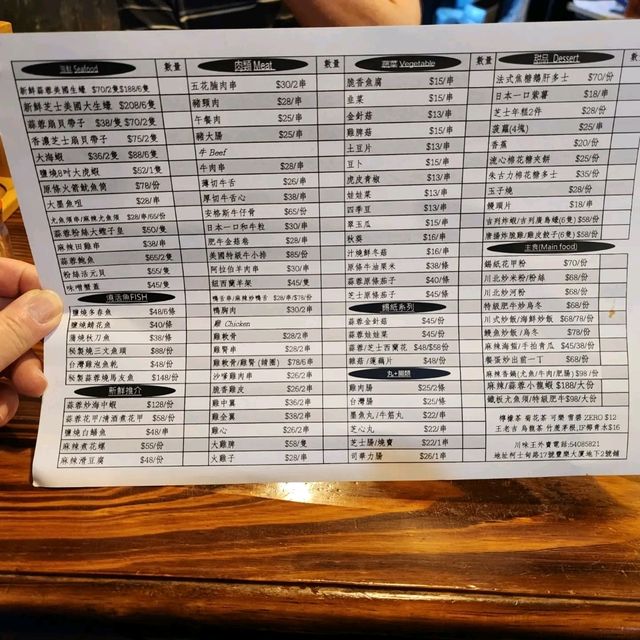 海鮮 Seafood 數量
新鮮蒜蓉美國生蠔 $70/2隻$188/6隻
新鮮芝士美國大生蠔 $208/6隻
蒜蓉扇貝帶子 $38/隻 $70/2隻
香濃芝士扇貝帶子 $75/2隻
大海蝦 $36/2隻 $88/6隻
鹽燒8吋大虎蝦 $52/1隻
原條火箭魷魚筒 $78/份
大墨魚咀 $28/串
尤魚須串/麻辣尤魚須 $28/串/65/份
蒜蓉粉絲大蟶子皇 $50/隻
麻辣田雞串 $38/串
蒜蓉鮑魚 $65/2隻
粉絲活元貝 $55/隻
味噌蟹蓋 $45/隻
燒活魚FISH
鹽燒多春魚 $48/6條
鹽燒鯖花魚 $40/條
蒲燒秋刀魚 $38/條
秘製燒三文魚頭 $88/份
台灣雞泡魚乾 $48/份
秘製蒜蓉燒馬友魚 $148/份
新鮮推介
蒜蓉炒海中蝦 $128/份
蒜蓉花甲/清酒煮花甲 $58/份
鹽燒白鱔魚 $48/串
麻辣煮花螺 $55/份
麻辣滑豆腐 $48/份
肉類 Meat 數量
五花腩肉串 $30/2串
豬頸肉 $28/串
午餐肉 $25/串
豬大腸 $25/串
牛 Beef
牛肉串 $28/串
薄切牛舌 $26/串
厚切牛舌心 $38/串
安格斯牛仔骨 $65/份
日本一口和牛粒 $30/串
肥牛金菇卷 $28/串
美國特級牛小排 $85/份
阿拉伯羊肉串 $30/串
紐西蘭羊架 $45/隻
鴨舌串/麻辣炒鴨舌 $28/串/$78/份
鴨胸肉 $30/2串
雞 Chicken
雞軟骨 $28/2串
雞腎串 $28/2串
雞軟骨/雞腎(雙團) $78/6串
沙嗲雞肉串 $26/串
脆香雞皮 $26/2串
雞中翼 $36/2串
雞全翼 $38/2串
雞心 $26/2串
大雞髀 $58/隻
火雞子 $28/串
蔬菜 Vegetable 數量
脆香魚腐 $15/串
韭菜 $15/串
金針菇 $13/串
雞脾菇 $15/串
土豆片 $13/串
豆卜 $15/串
虎皮青椒 $13/串
娃娃菜 $13/串
四季豆 $13/串
翠玉瓜 $15/串
秋葵 $16/串
汁燒鮮冬菇 $16/串
原條牛油粟米 $38/條
蒜蓉原條茄子 $40/條
芝士原條茄子 $45/條
錫紙系列
蒜蓉金針菇 $45/份
蒜蓉娃娃菜 $45/份
蒜蓉/芝士西蘭花 $48/58/份
雜菇/蓮藕片 $48/份
丸+腸類
雞肉腸 $25/2條
台灣腸 $25/條
墨魚丸/牛筋丸 $22/串
芝心丸 $22/串
芝士腸/燒賣 $22/1串
司華力腸 $26/1串
甜品 Dessert 數
法式焦糖鵝肝多士 $70/份
日本一口紫薯 $18/串
芝士年糕2件 $28/份
菠蘿(4塊) $25/串
香蕉 $20/份
流心棉花糖夾餅 $25/份
朱古力棉花糖多士 $35/份
玉子燒 $28/份
饅頭片 $18/串
吉列炸蝦/吉列廣島蠔(6隻)$58/份
唐揚炸脆雞/雞皮餃子(6隻)$58/份
主食(Main food)
錫紙花甲粉 $70/份
川北炒米粉/粉絲 $68/份
川北炒河粉 $68/份
特級肥牛炒烏冬 $68/份
川式炒飯/海鮮炒飯 $68/78/份
鰻魚炒飯/烏冬 $78/份
麻辣海蜇/手拍青瓜 $45/38/份
餐蛋炒出前一丁 $68/份
麻辣香鍋(尤魚/牛肉/肥腸)$98/份
麻辣/蒜蓉小龍蝦 $188/大份
鐵板尤魚須/特級肥牛$98/大份
檸檬茶 菊花茶 可樂 雪碧 ZERO $12
王老吉 烏龍茶 竹蔗茅根,IF椰青水$16
川味王外賣電話:54085821
地址柯士甸路17號豐樂大廈地下2號鋪